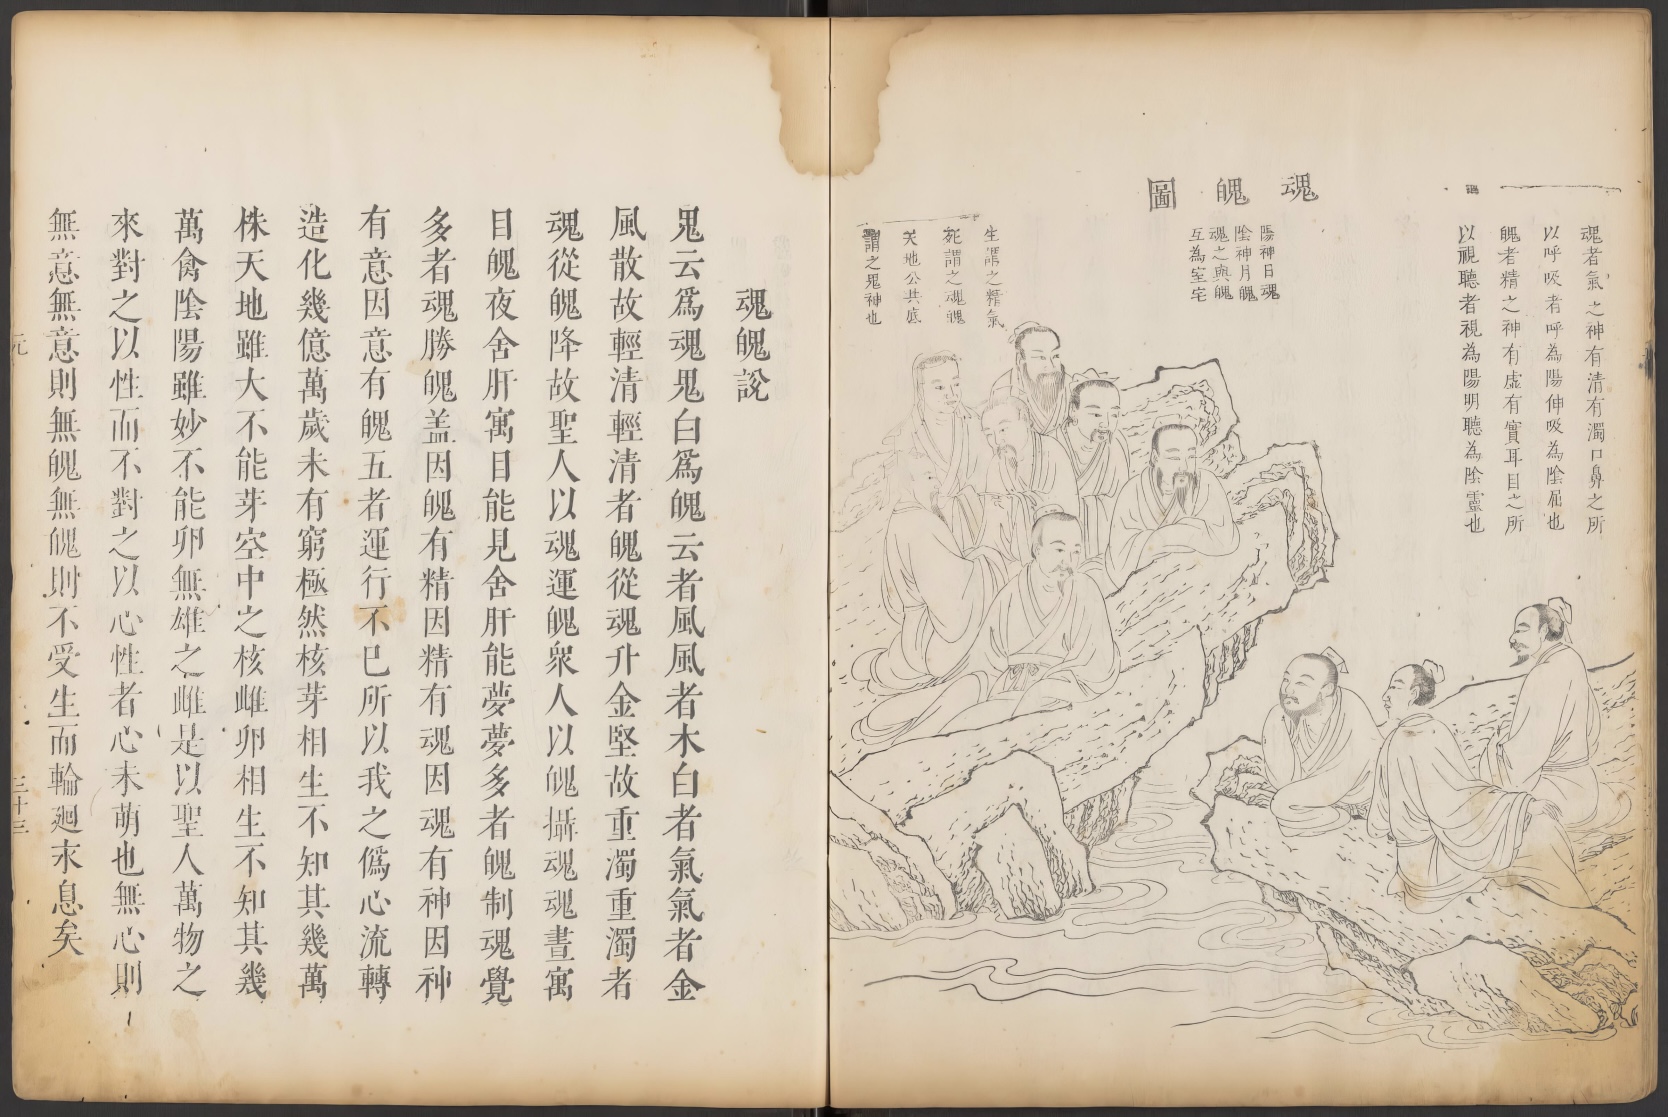 魂者氣之神有清有濁口鼻之所
以呼吸者呼為陽伸吸為陰屈也
魄者精之神有虛有實耳目之所
以視聽者視為陽明聽為陰靈也
魂魄圖
陽神日魂
陰神月魄
魂之與魄
互為室宅
生謂之精氣
死謂之魂魄
天地公共底
謂之鬼神也
魂魄說
鬼云爲魂鬼白爲魄云者風風者木白者氣氣者金
風散故輕清輕清者魄從魂升金堅故重濁重濁者
魂從魄降故聖人以魂運魄衆人以魄攝魂魂晝寓
目魄夜舍肝寓目能見舍肝能夢夢多者魄制魂覺
多者魂勝魄盖因魄有精因精有魂因魂有神因神
有意因意有魄五者運行不已所以我之僞心流轉
造化幾億萬歲未有窮極然核芽相生不知其幾萬
株天地雖大不能芽空中之核雌卵相生不知其幾
萬禽陰陽雖妙不能卵無雄之雌是以聖人萬物之
來對之以性而不對之以心性者心未萌也無心則
無意無意則無魄無魄則不受生而輪廻永息矣
元
三十三